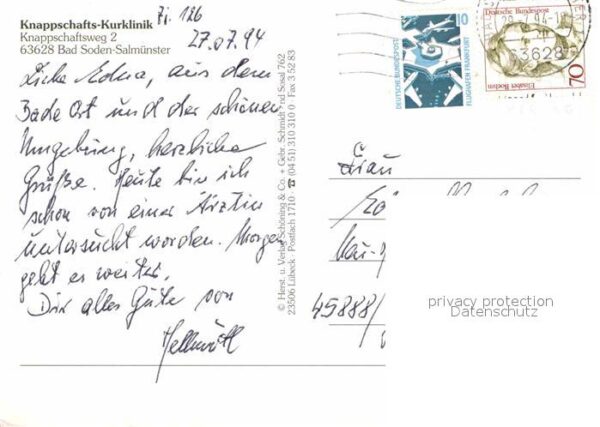 Zi. 126
27.07.94
Knappschafts-Kurklinik
Knappschaftsweg 2
63628 Bad Soden-Salmünster
Liebe Edura, aus dem
Bade Ort und der schönen
Umgebung, herzliche
Grüße. Heute bin ich
schon von einer Ärztin
untersucht worden. Morgen
geht es weiter.
Dir alles Gute von
Hellmuth
© Herst. u. Verlag Schöning & Co. + Gebr. Schmidt
23506 Lübeck · Postfach 1710 · ☎ (04 51) 310 310 · Fax 3 52 83
Sosal 762
DEUTSCHE BUNDESPOST
10
FLUGHAFEN FRANKFURT
Deutsche Bundespost
70
Elisabet Boehm
-7.94-
63628
Frau
45888/
privacy protection
Datenschutz